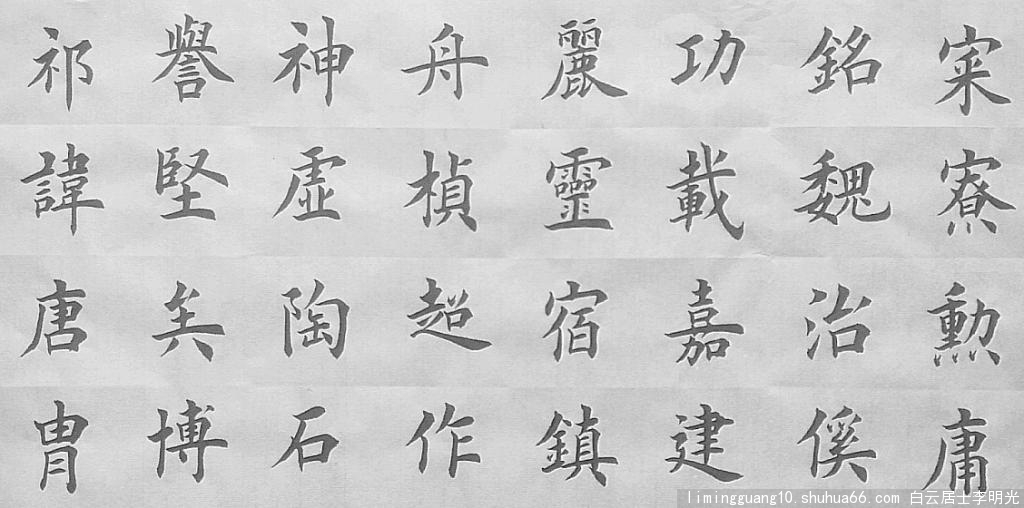 寀寮勳庸
銘魏治傒
功載嘉建
麗靈宿鎮
舟楨超作
神虛陶石
譽堅矣博
祁諱唐冑
limingguang10.shuhua66.com 白云居士李明光